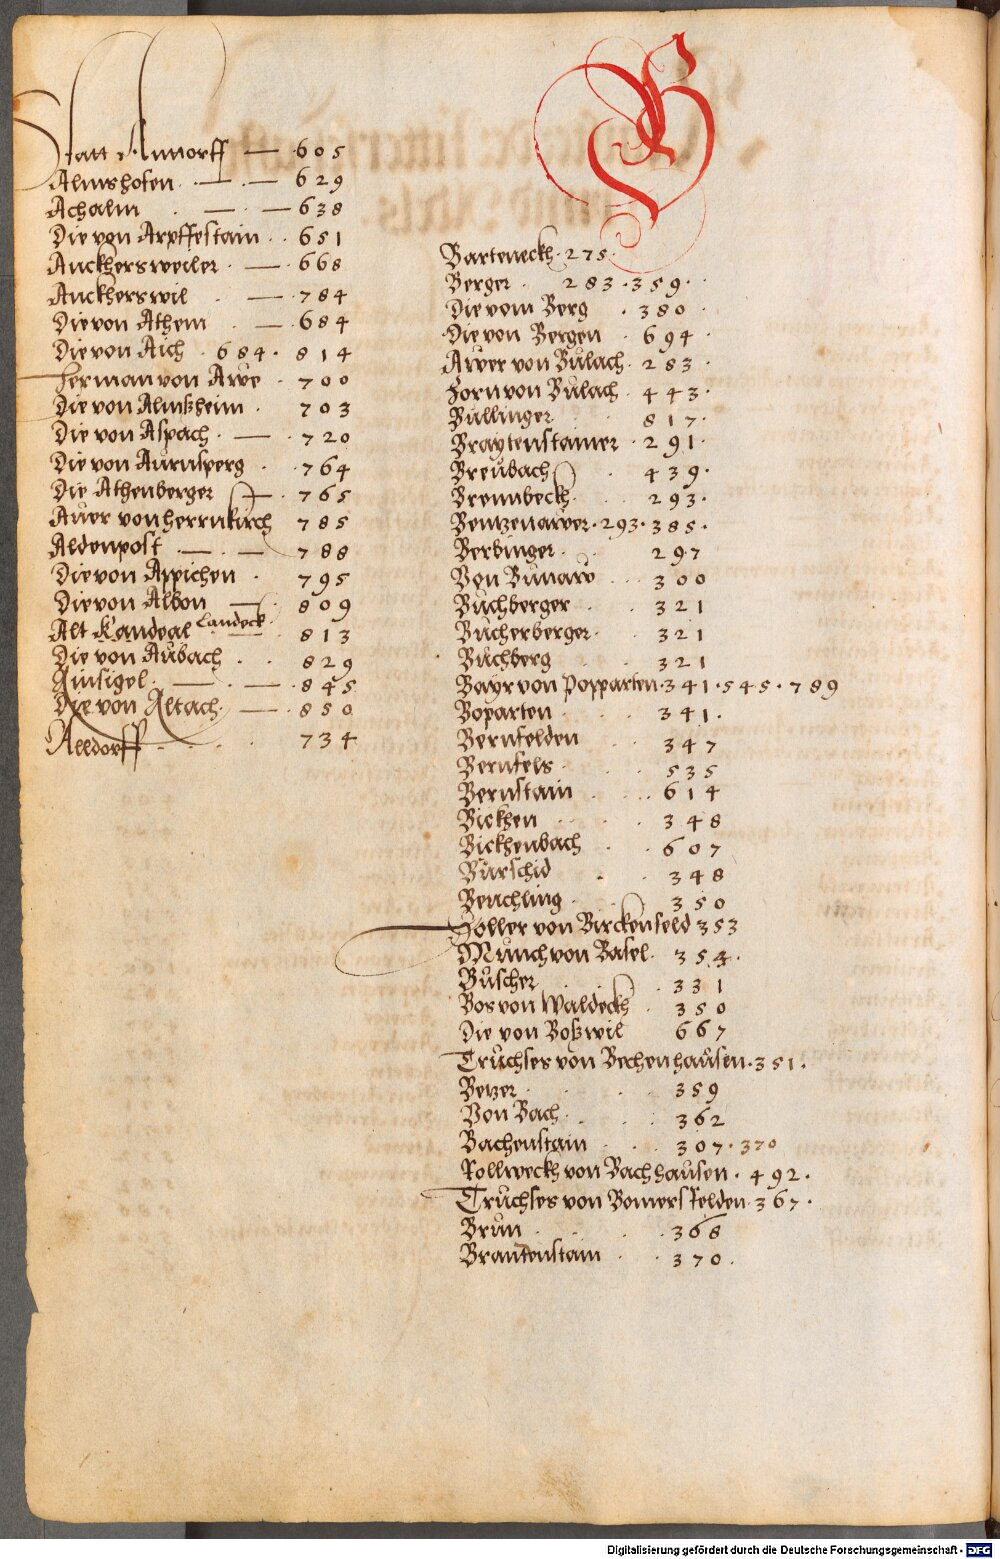 Statt Anttorff — 605
Almshofen — 629
Achalm — 638
Die von Arpffestain 651
Anckhersweiler — 668
Anckherswil — 784
Die von Athem — 684
Die von Aich 684 · 814
Herman von Awe 700
Die von Almßheim 703
Die von Aspach — 720
Die von Aurnsperg 764
Die Athenberger — 765
Aŭer von herrnkirch 785
Aldenpost — 788
Die von Appichen 795
Die von Albon — 809
Alt Landeck 813
Die von Aŭbach 829
Ainsigel — 845
Die von Altach — 850
Alldorff 734
B
Barteneckh · 275 ·
Berger 283 · 359 ·
Die vom Berg 380
Die von Bergen 694
Awer von Bŭlach 283
Zorn von Bŭlach 443
Bullinger 817
Braytenstainer 291
Breŭbach 439
Brennbeckh 293
Bentzenawer · 293 · 385 ·
Berbinger 297
Von Bŭnaw 300
Bŭchberger 321
Bŭcherberger 321
Bŭchberg 321
Bayr von Popparten · 341 · 545 · 789
Boparten 341
Bernfelden 347
Bernfels 535
Bernstain 614
Bickhen 348
Bickhenbach 607
Bŭrschid 348
Benchling 350
Holler von Birckenfeld 353
Mŭnch von Basel 354
Bŭscher 331
Bos von Waldeckh 350
Die von Boßwil 667
Trŭchses von Bechenhaŭsen · 351 ·
Betzer 359
Von Bach 362
Bachenstain 307 · 370
Rollweckh von Bachhaŭsen · 492 ·
Trŭchses von Bomersfelden 367 ·
Brŭn 368
Brandenstain 370
Digitalisierung gefördert durch die Deutsche Forschungsgemeinschaft - DFG